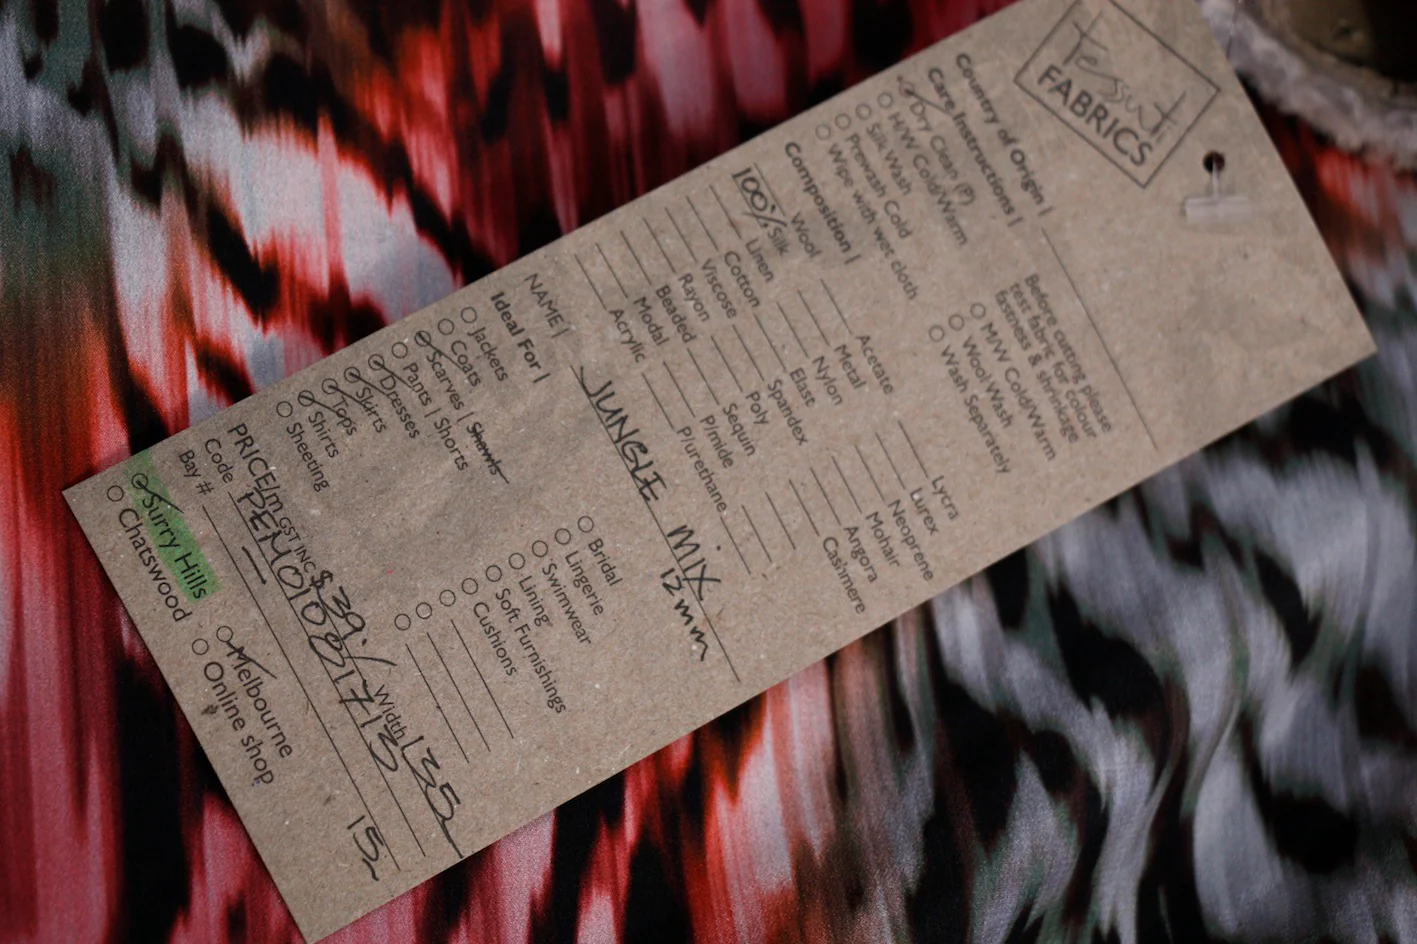 Tessuti
FABRICS
Country of Origin |
Care Instructions |
Dry Clean (P)
H/W Cold/Warm
Silk Wash
Prewash Cold
Wipe with wet cloth
Before cutting please
test fabric for colour
fastness & shrinkage
M/W Cold/Warm
Wool Wash
Wash Separately
Composition |
Wool
100% Silk
Linen
Cotton
Viscose
Rayon
Beaded
Modal
Acrylic
Acetate
Metal
Nylon
Elast
Spandex
Poly
Sequin
P/mide
P/urethane
Lycra
Lurex
Neoprene
Mohair
Angora
Cashmere
NAME | JUNGLE MIX
12mm
Ideal For |
Jackets
Coats
Scarves | Shawls
Pants | Shorts
Dresses
Skirts
Tops
Shirts
Sheeting
Bridal
Lingerie
Swimwear
Lining
Soft Furnishings
Cushions
PRICE/m GST INC $39./ Width 135
Code PEM01081713
Bay # 15
Surry Hills
Chatswood
Melbourne
Online shop